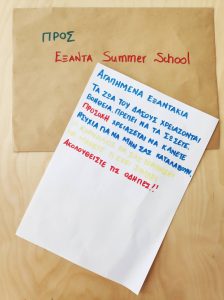 ΠΡΟΣ
ΕΞΑΝΤΑ Summer School
ΑΓΑΠΗΜΕΝΑ ΕΞΑΝΤΑΚΙΑ
ΤΑ ΖΩΑ ΤΟΥ ΔΑΣΟΥΣ ΧΡΕΙΑΖΟΝΤΑΙ
ΒΟΗΘΕΙΑ. ΠΡΕΠΕΙ ΝΑ ΤΑ ΣΩΣΕΤΕ.
ΠΡΟΣΟΧΗ ΧΡΕΙΑΖΕΤΑΙ ΝΑ ΚΑΝΕΤΕ
ΗΣΥΧΙΑ ΓΙΑ ΝΑ ΜΗΝ ΣΑΣ ΚΑΤΑΛΑΒΟΥΝ
ΑΚΟΛΟΥΘΕΙΣΤΕ ΤΙΣ ΟΔΗΓΙΕΣ!!